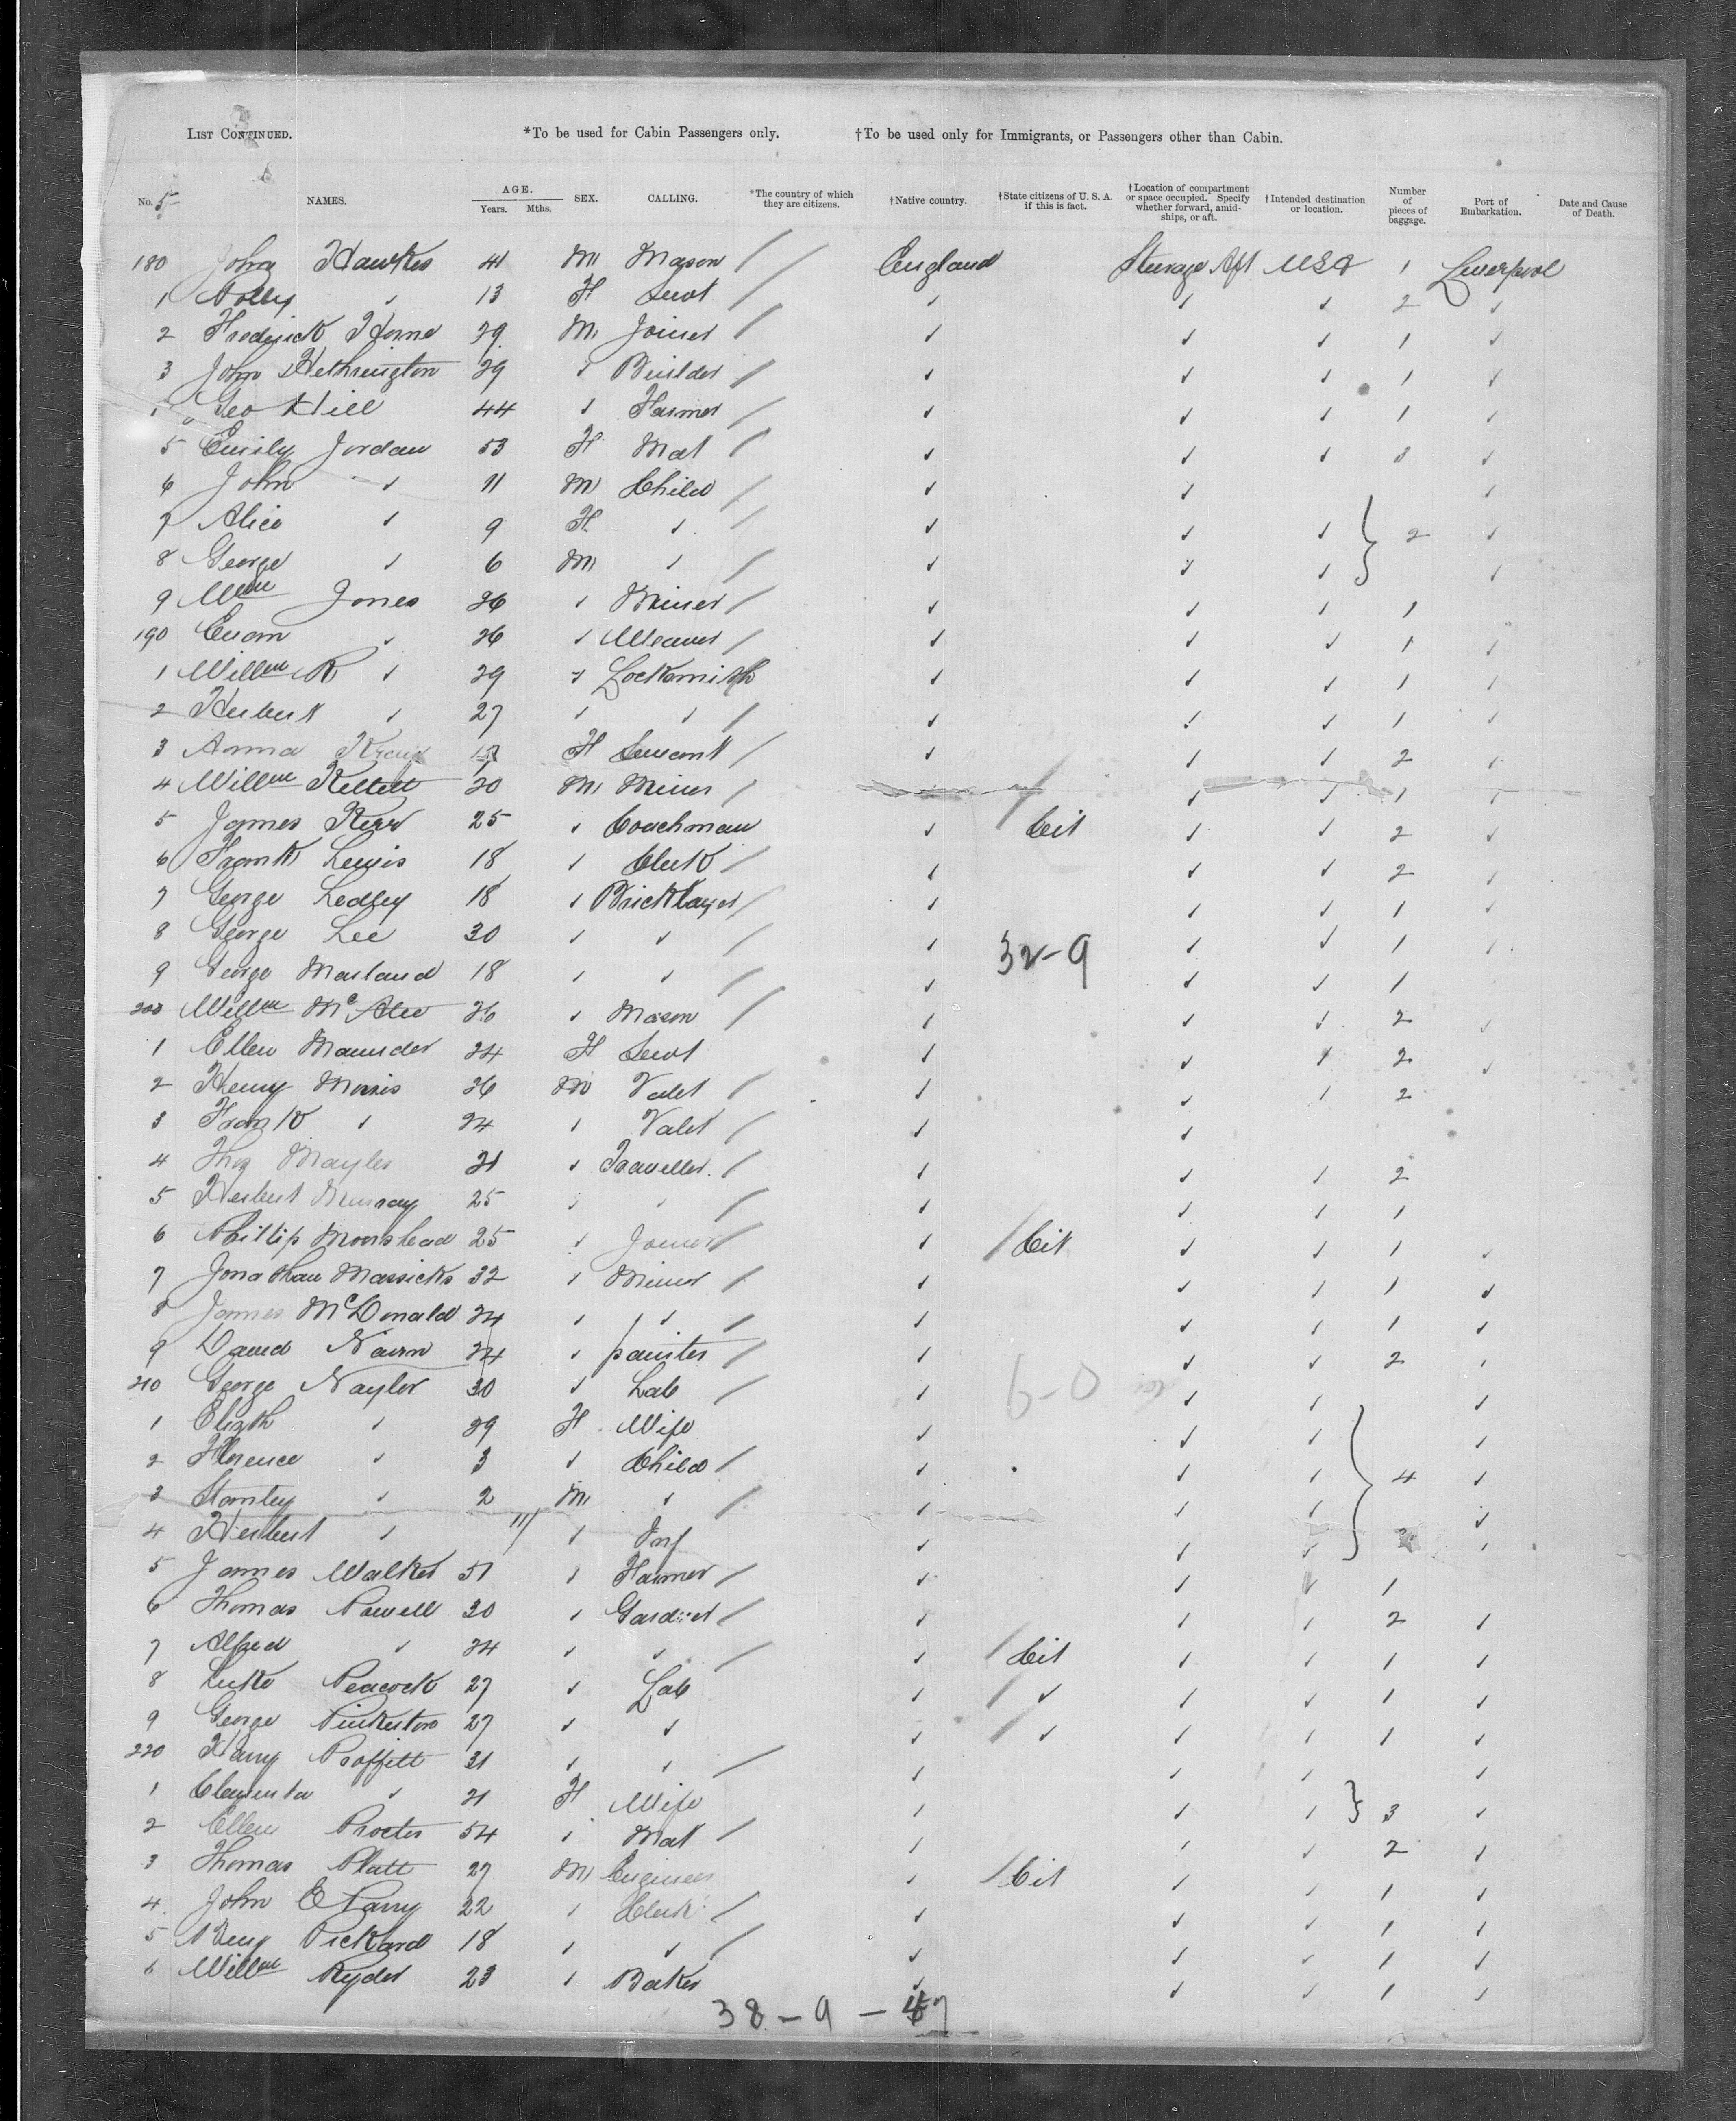 LIST CONTINUED. *To be used for Cabin Passengers only. †To be used only for Immigrants, or Passengers other than Cabin.
No. 5 NAMES. AGE. Years. Mths. SEX. CALLING. *The country of which they are citizens. †Native country. †State citizens of U. S. A. if this is fact. †Location of compartment or space occupied. Specify whether forward, amidships, or aft. †Intended destination or location. Number of pieces of baggage. Port of Embarkation. Date and Cause of Death.
180 John Hawkes 41 M Mason / England Steerage Aft USA 1 Liverpool
1 Polly ✓ 13 F Servt / ✓ ✓ ✓ 2 ✓
2 Frederick Horne 29 M Joiner / ✓ ✓ ✓ 1 ✓
3 John Hetherington 29 ✓ Builder / ✓ ✓ ✓ 1 ✓
Geo Hill 44 ✓ Farmer / ✓ ✓ ✓ 1 ✓
5 Emily Jordan 53 F Mat / ✓ ✓ ✓ 3 ✓
6 John ✓ 11 M Child / ✓ ✓ ✓
7 Alice ✓ 9 F ✓ / ✓ ✓ ✓ 2 ✓
8 George ✓ 6 M ✓ / ✓ ✓ ✓ ✓
9 Wm Jones 26 ✓ Miner / ✓ ✓ ✓ 1
190 Evan ✓ 26 ✓ Weaver / ✓ ✓ ✓ 1 ✓
1 Willm R ✓ 29 ✓ Locksmith ✓ ✓ ✓ 1 ✓
2 Herbert ✓ 27 ✓ ✓ / ✓ ✓ ✓ 1 ✓
3 Anna F Servant / ✓ ✓ ✓ 2 ✓
4 Willm Kellett 20 M Miner / ✓ ✓ 1 ✓
5 James Kerr 25 ✓ Coachman ✓ / Cit ✓ ✓ 2 ✓
6 Frank Lewis 18 ✓ Clerk / ✓ ✓ ✓ 2 ✓
7 George Ledley 18 ✓ Bricklayer / ✓ ✓ ✓ 1 ✓
8 George Lee 30 ✓ ✓ / ✓ ✓ ✓ 1 ✓
32-9
9 George Marland 18 ✓ ✓ / ✓ ✓ ✓ 1
200 Willm McAlee 26 ✓ Mason / ✓ ✓ ✓ 2 ✓
1 Ellen Maunder 24 F Servt ✓ ✓ ✓ 2 ✓
2 Henry Morris 26 M Valet / ✓ ✓ ✓ 2
3 Frank ✓ 24 ✓ Valet / ✓ ✓
4 Thos Mayles 21 ✓ Traveller. / ✓ ✓ ✓ 2
5 Herbert Murray 25 ✓ ✓ / ✓ ✓ ✓ 1
6 Phillip Moorshead 25 ✓ Joiner / ✓ / Cit ✓ ✓ 1 ✓
7 Jonathan Massicks 32 ✓ Miner / ✓ ✓ ✓ 1 ✓
8 James McDonald 24 ✓ ✓ / ✓ ✓ ✓ 1 ✓
9 David Nairn 24 ✓ painter / ✓ ✓ ✓ 2 ✓
210 George Naylor 30 ✓ Lab / ✓ 6-0 ✓ ✓ ✓
1 Elizth ✓ 29 F Wife ✓ ✓ ✓ ✓
2 Florence ✓ 3 ✓ Child / ✓ ✓ ✓ 4 ✓
3 Stanley ✓ 2 M ✓ / ✓ ✓ ✓ ✓
4 Herbert ✓ 11/ ✓ Inf ✓ ✓ ✓ ✓
5 James Walker 51 ✓ Farmer / ✓ ✓ ✓ 1
6 Thomas Powell 30 ✓ Gardner / ✓ ✓ ✓ 2 ✓
7 Alfred ✓ 24 ✓ ✓ / ✓ / Cit ✓ ✓ 1 ✓
8 Luke Peacock 27 ✓ Lab ✓ / ✓ ✓ ✓ 1 ✓
9 George Pinkerton 27 ✓ ✓ ✓ / ✓ ✓ ✓ 1 ✓
220 Harry Proffitt 21 ✓ ✓ / ✓ ✓ ✓ ✓
1 Clementa ✓ 21 F Wife ✓ ✓ ✓ 3 ✓
2 Ellen Procter 54 ✓ Mat / ✓ ✓ ✓ 2 ✓
3 Thomas Platt 27 M Engineer ✓ / Cit ✓ ✓ 1 ✓
4 John E Parry 22 ✓ Clerk / ✓ ✓ ✓ 1 ✓
5 Benj Pickard 18 ✓ ✓ / ✓ ✓ ✓ 1 ✓
6 Willm Ryder 23 ✓ Baker ✓ ✓ ✓ 1 ✓
38-9-47